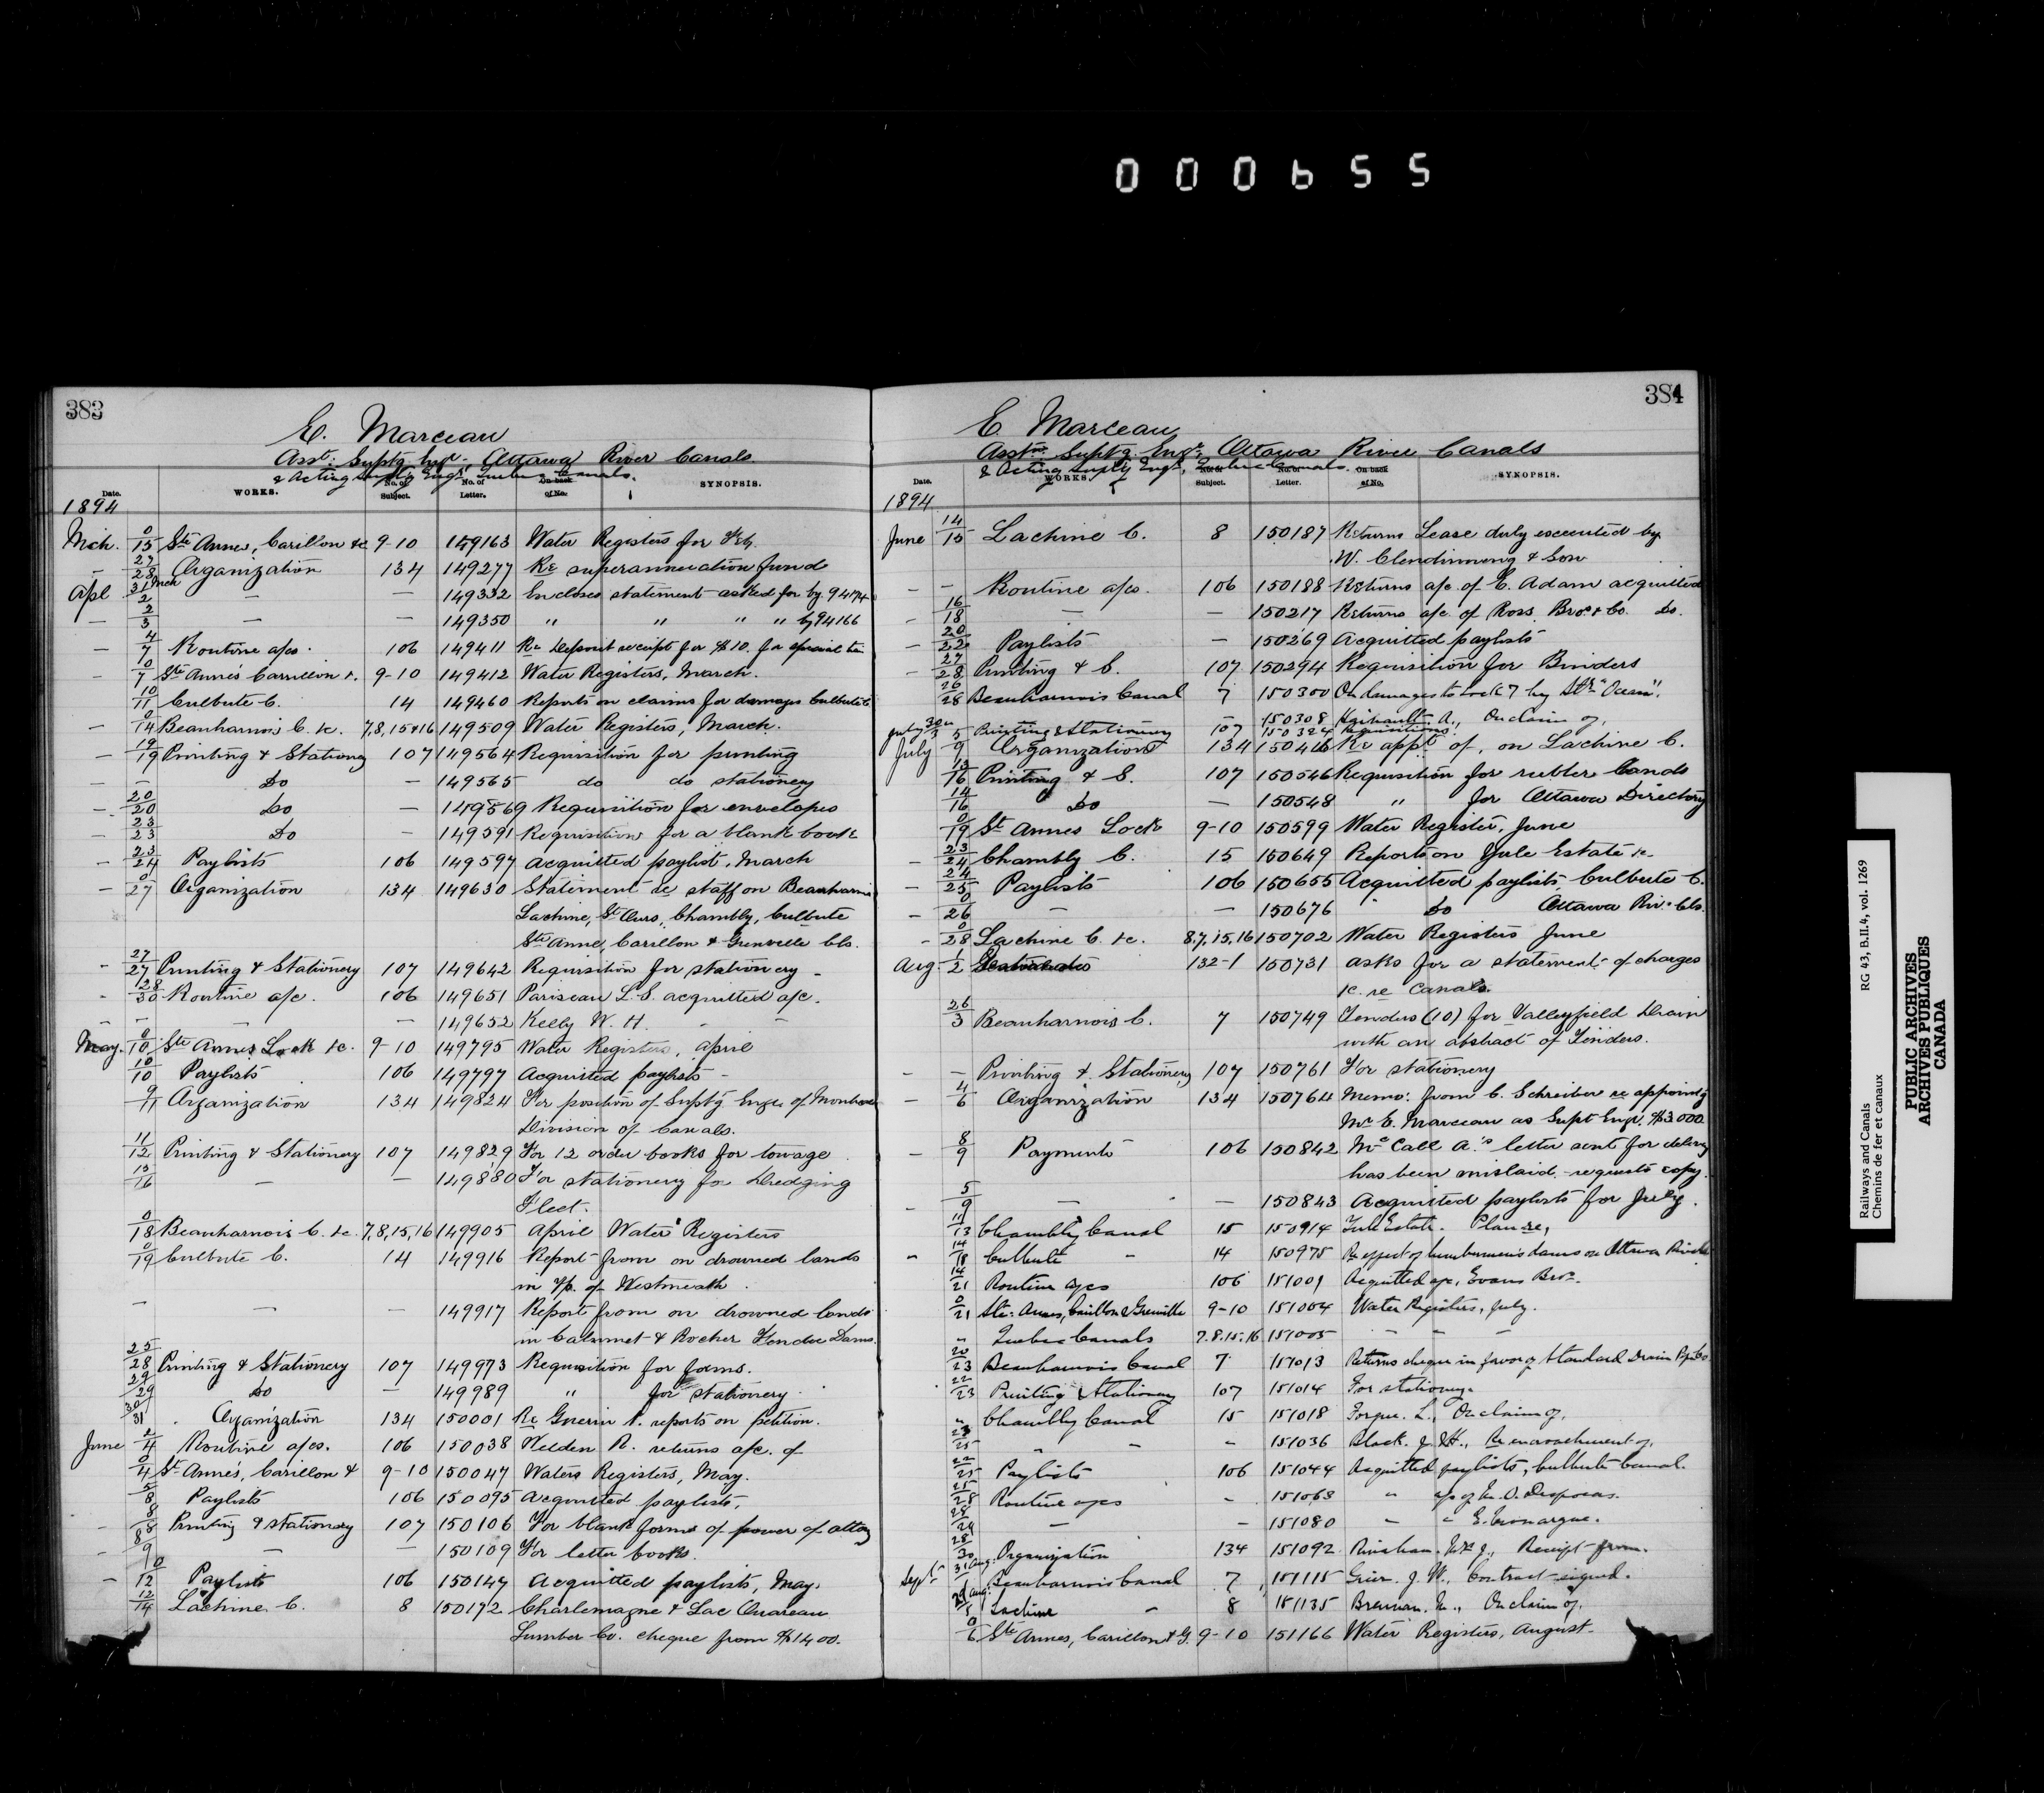 000655
383
E. Marceau
Asst. Suptg Engr. Ottawa River Canals
& Acting Suptg Engr. Quebec Canals.
Date. WORKS. No. of Subject. No. of Letter. On back of No. SYNOPSIS.
1894
Mch. 0/15 Ste Annes, Carillon &c 9-10 149163 Water Registers for Feb.
— 27/28 Organization 134 149277 Re superannuation fund
Apl 31 Mch/2 — — 149332 Encloses statement asked for by 94174
— 2/3 — — 149350 " " " " by 94166
— 4/7 Routine a/cs. 106 149411 Re Deposit receipt for $10. for special
— 0/7 Ste Anne's Carrillon &. 9-10 149412 Water Registers, March.
10/11 Culbute C. 14 149460 Reports on claims for damages Culbute
— 0/14 Beauharnois C. &c. 7,8,15&16 149509 Water Registers, March.
— 19/19 Printing & Stationery 107 149564 Requisition for printing
— — Do — 149565 do do stationery
— 20/20 Do — 149569 Requisition for envelopes
— 23/23 Do — 149591 Requisition for a blank book
— 23/24 Paylists 106 149597 Acquitted paylist, March
— 0/27 Organization 134 149630 Statement re staff on Beauharnois
Lachine, St Ours, Chambly, Culbute
Ste Anne, Carillon & Grenville Cls.
- 27/27 Printing & Stationery 107 149642 Requisition for stationery -
- 28/30 Routine a/c. 106 149651 Pariseau L.S. acquitted a/c.
— — — — 149652 Kelly W. H. - -
May. 0/10 Ste Annes Lock &c. 9-10 149795 Water Registers, April
10/10 Paylists 106 149797 Acquitted paylists -
9/11 Organization 134 149824 For position of Suptg Engr. of Montreal
Division of Canals.
11/12 Printing & Stationery 107 149829 For 12 order books for towage
15/16 — — 149880 For stationery for Dredging
Fleet.
0/18 Beauharnois C. &c. 7,8,15,16 149905 April Water Registers
0/19 Culbute C. 14 149916 Report from on drowned lands
in T/p. of Westmeath.
— — — 149917 Report from on drowned lands
in Calumet & Rocher Fendu Dams.
25/28 Printing & Stationery 107 149973 Requisition for forms.
29/29 Do — 149989 " for stationery.
30/31 Organization 134 150001 Re Guerin reports on petition.
June 2/4 Routine a/cs. 106 150038 Welden R. returns a/c. of
0/4 St Anne's, Carillon & 9-10 150047 Waters Registers, May.
5/8 Paylists 106 150095 Acquitted paylists,
— 8/8 Printing & stationery 107 150106 For blank forms of power of attoy
— 8/9 — — 150109 For letter books.
— 0/12 Paylists 106 150147 Acquitted paylists, May.
12/14 Lachine C. 8 150172 Charlemagne & Lac Ouareau
Lumber Co. cheque from $1400.
384
E Marceau
Asstnt Suptg. Engr. Ottawa River Canals
& Acting Suptg Engr, Quebec Canals.
Date. WORKS. No. of Subject. No. of Letter. On back of No. SYNOPSIS.
1894
June 14/15 Lachine C. 8 150187 Returns Lease duly executed by
W. Clendinneng & Son
— Routine a/cs. 106 150188 Returns a/c. of E. Adam acquitted
— 16/18 — — 150217 Returns a/c. of Ross Bros & Co. Do.
— 20/22 Paylists — 150269 Acquitted paylists
— 27/28 Printing & S. 107 150294 Requisition for Binders
26/28 Beauharnois Canal 7 150300 On damages to Lock 7 by Str "Ocean".
150308 A., On claim of,
July 30 u/3 5 Printing & Stationery 107 150324 Requisitions
July 9 Organization 134 150416 Re appt of, on Lachine C.
13/16 Printing & S. 107 150546 Requisition for rubber bands
14/16 Do — 150548 " for Ottawa Directory
0/19 St Annes Lock 9-10 150599 Water Register, June
— 23/24 Chambly C. 15 150649 Reports on Yule Estate &c.
— 24/25 Paylists 106 150655 Acquitted paylists Culbute C.
— 0/26 — — 150676 " Do Ottawa Riv. Cls.
- 0/28 Lachine C. &c. 8,7,15,16 150702 Water Registers June
Aug 1/2 132-1 150731 asks for a statement of charges
&c. re Canals.
26/3 Beauharnois C. 7 150749 Tenders (10) for Valleyfield Drain
with an abstract of Tenders.
— — Printing & Stationery 107 150761 For stationery
— 4/6 Organization 134 150764 Memo: from C. Schreiber re appointg
Mr E. Marceau as Supt Engr. $3000
— 8/9 Payments 106 150842 McCall A.'s letter sent for delivery
has been mislaid - requests copy.
- 5/9 — — 150843 Acquitted paylists for July.
11/13 Chambly Canal 15 150914 Yule Estate. Plan re,
- 14/18 Culbute - 14 150975 Re effect of lumbermen's dams on Ottawa River
14/21 Routine a/cs 106 151001 Acquitted a/c, Evans Bros.
0/21 Ste. Annes, Carillon & Grenville 9-10 151004 Water Registers, July.
" Quebec Canals 7.8.15.16 151005 - - -
20/23 Beauharnois Canal 7 151013 Returns cheque in favor of Standard Drain Pipe Co
22/23 Printing & Stationery 107 151014 For stationery.
" Chambly Canal 15 151018 Forgue. L., On claim of,
23/25 " - - 151036 Black. J. H., Re encroachment of,
22/25 Paylists 106 151044 Acquitted paylists, Culbute Canal.
25/28 Routine a/cs - 151063 " a/c of
28/29 — - 151080 - "
28/30 Organization 134 151092 Receipt from.
Sept. 31 Aug. Beauharnois Canal 7 151115 Grier. J. W., Contract signed.
29 Aug./5 Lachine - 8 151135 Brennan. M., On claim of,
0/6 Ste Annes, Carillon & G. 9-10 151166 Water Registers, August-
Railways and Canals RG 43, B.II.4, vol. 1269
Chemins de fer et canaux
PUBLIC ARCHIVES
ARCHIVES PUBLIQUES
CANADA